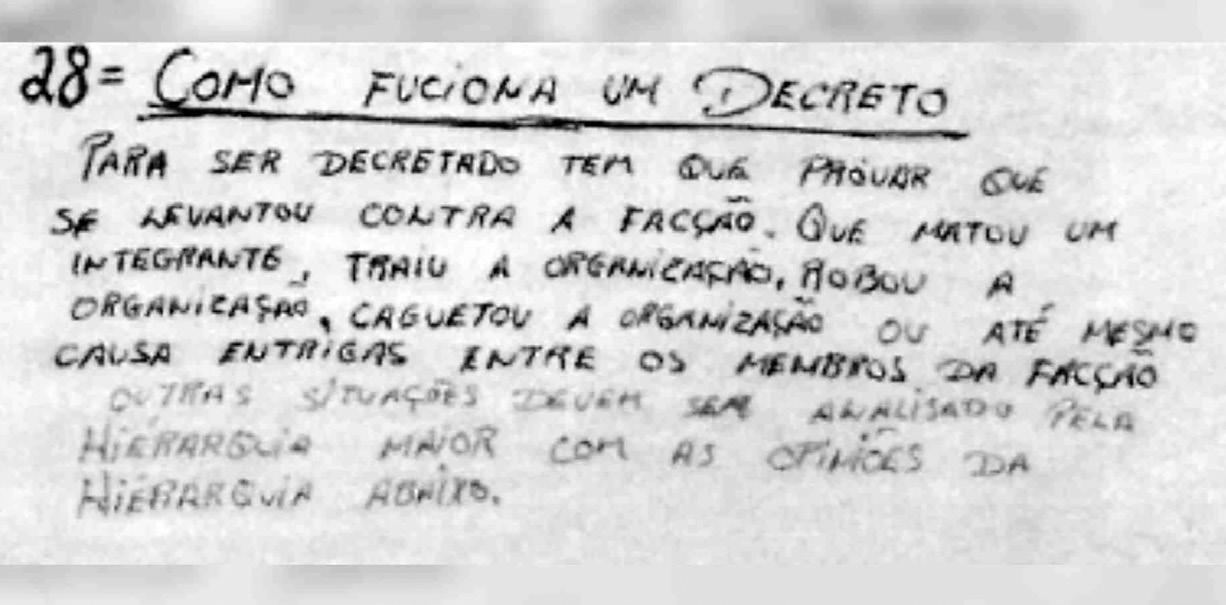 28= COMO FUCIONA UM DECRETO
PARA SER DECRETADO TEM QUE PROVAR QUE
SE LEVANTOU CONTRA A FACÇÃO. QUE MATOU UM
INTEGRANTE, TRAIU A ORGANIZAÇÃO, ROBOU A
ORGANIZAÇÃO, CAGUETOU A ORGANIZAÇÃO OU ATÉ MESMO
CAUSA ENTRIGAS ENTRE OS MEMBROS DA FACÇÃO
OUTRAS SITUAÇÕES DEVEM SEM ANALISADO PELA
HIERARQUIA MAIOR COM AS OPINIÕES DA
HIERARQUIA ABAIXO.